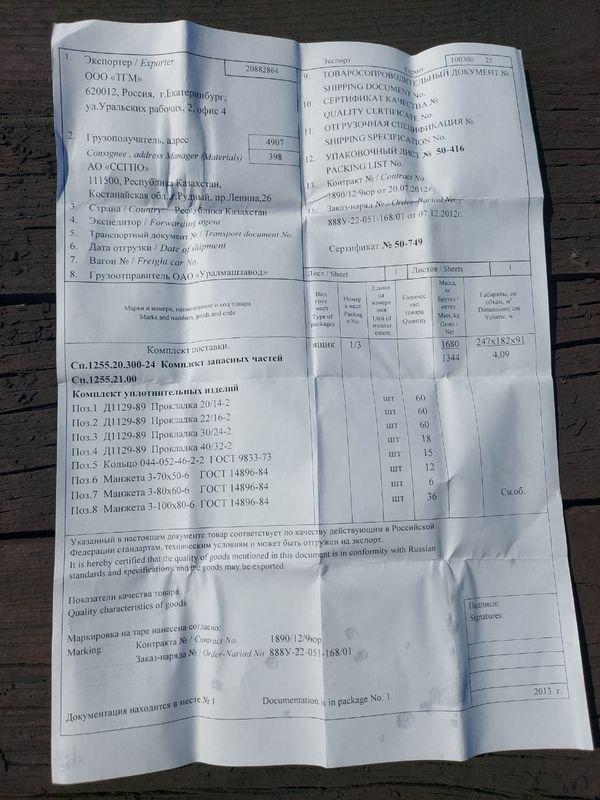 Экспорт Export 100300 25
1. Экспортер / Exporter 20882864
ООО «ТГМ»
620012, Россия, г.Екатеринбург,
ул.Уральских рабочих, 2, офис 4
2. Грузополучатель, адрес 4907
Consignee, address Manager (Materials) 398
АО «ССГПО»
111500, Республика Казахстан,
Костанайская обл., г.Рудный, пр.Ленина,26
3. Страна / Country: Республика Казахстан
4. Экспедитор / Forwarding agent
5. Транспортный документ № / Transport document No.
6. Дата отгрузки / Date of shipment
7. Вагон № / Freight car No.
8. Грузоотправитель ОАО «Уралмашзавод»
9. ТОВАРОСОПРОВОДИТЕЛЬНЫЙ ДОКУМЕНТ №
SHIPPING DOCUMENT No.
10. СЕРТИФИКАТ КАЧЕСТВА №
QUALITY CERTIFICATE No.
11. ОТГРУЗОЧНАЯ СПЕЦИФИКАЦИЯ №
SHIPPING SPECIFICATION No.
12. УПАКОВОЧНЫЙ ЛИСТ № 50-416
PACKING LIST No.
13. Контракт № / Contract No.
1890/12/9юр от 20.07.2012г.
15. Заказ-наряд № / Order-Nariad No.
888У-22-051-168/01 от 07.12.2012г.
Сертификат № 50-749
Лист / Sheet 1 Листов / Sheets 1
Марки и номера, наименование и код товара
Marks and numbers, goods and code
Вид груз мест Type of packages
Номер а мест Packag s No.
Едини ца измере ния Unit of measur ement
Количес тво товара Quantity
Масса, кг Брутто / нетто Mass, kg Gross / Net
Габариты, см объем, м³ Dimensions, cm Volume, м³
Комплект поставки.
ящик 1/3 1680 247х182х91
1344 4,09
Сп.1255.20.300-24 Комплект запасных частей
Сп.1255.21.00
Комплект уплотнительных изделий
Поз.1 Д1129-89 Прокладка 20/14-2 шт 60
Поз.2 Д1129-89 Прокладка 22/16-2 шт 60
Поз.3 Д1129-89 Прокладка 30/24-2 шт 60
Поз.4 Д1129-89 Прокладка 40/32-2 шт 18
Поз.5 Кольцо 044-052-46-2-2 ГОСТ 9833-73 шт 15
Поз.6 Манжета 3-70х50-6 ГОСТ 14896-84 шт 12
Поз.7 Манжета 3-80х60-6 ГОСТ 14896-84 шт 6
Поз.8 Манжета 3-100х80-6 ГОСТ 14896-84 шт 36 См.об.
Указанный в настоящем документе товар соответствует по качеству действующим в Российской
Федерации стандартам, техническим условиям и может быть отгружен на экспорт.
It is hereby certified that the quality of goods mentioned in this document is in conformity with Russian
standards and specifications and the goods may be exported.
Показатели качества товара
Quality characteristics of goods
Подписи:
Signatures:
Маркировка на таре нанесена согласно:
Marking: Контракта № / Contract No. 1890/12/9юр
Заказ-наряда № / Order-Nariad No 888У-22-051-168/01
2013 г.
Документация находится в месте № 1 Documentation is in package No. 1